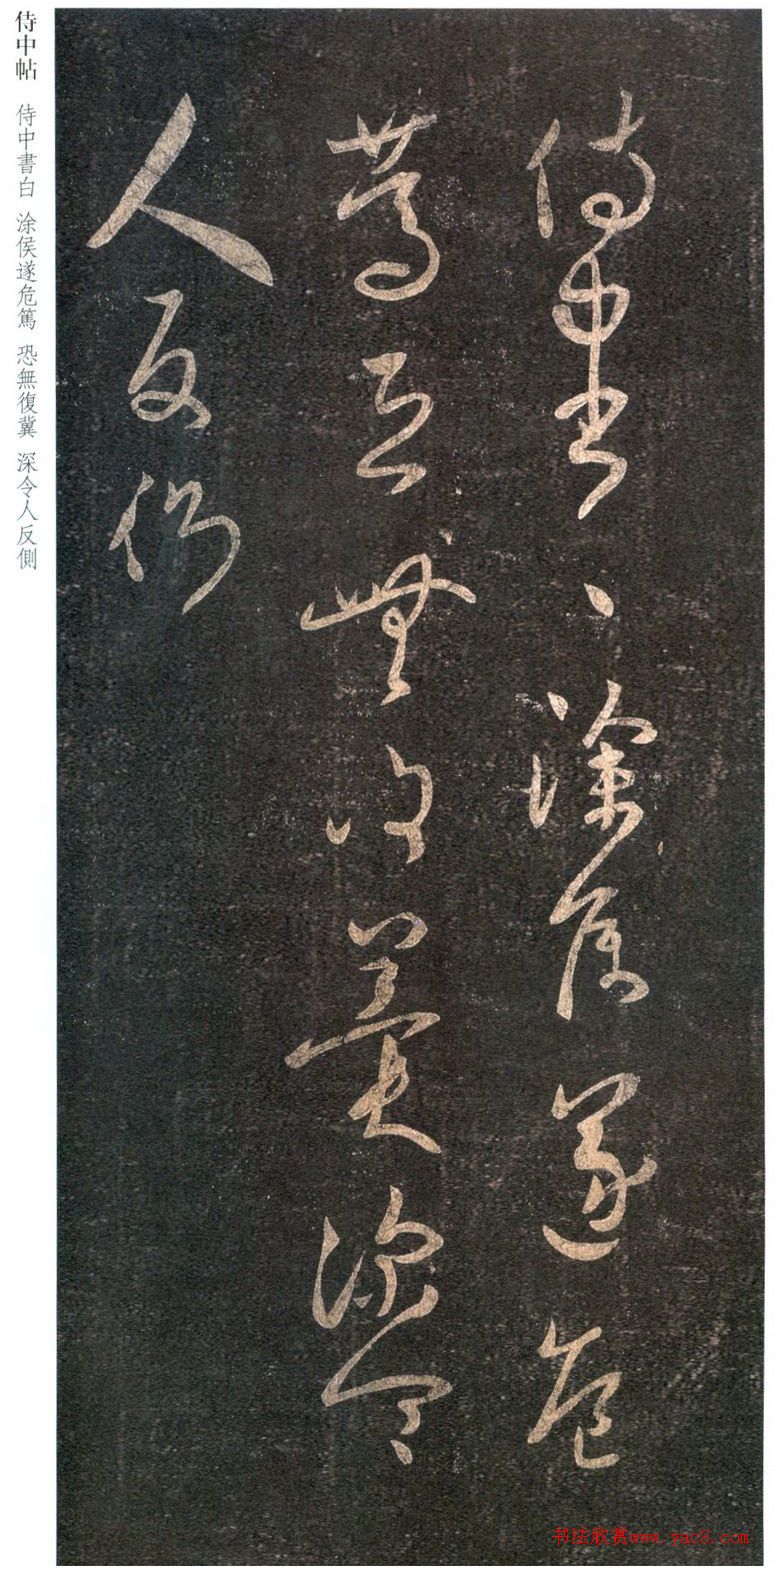 侍中帖 侍中書白 涂侯遂危篤 恐無復冀 深令人反側
侍中書、涂侯遂危
篤恐無復冀深令
人反側
书法欣赏www.yac8.com